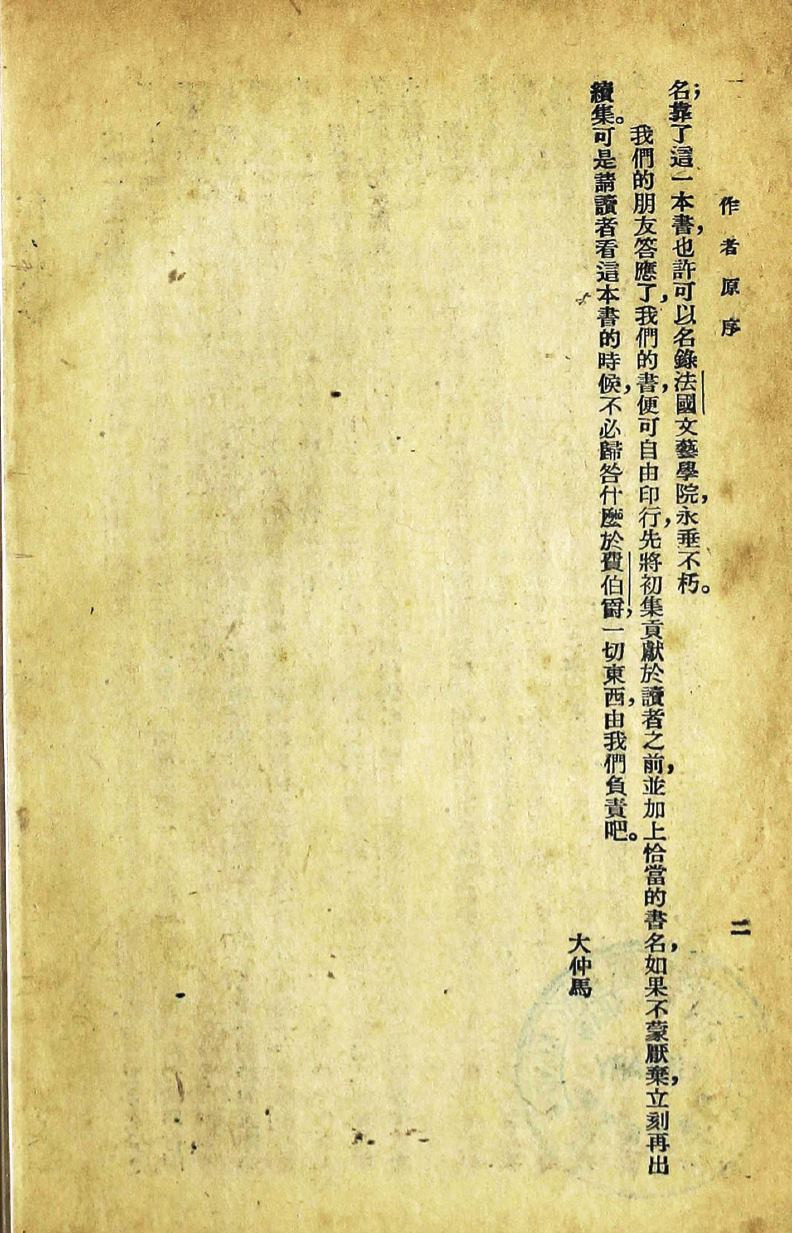 作者原序
二
名；靠了這一本書，也許可以名錄法國文藝學院，永垂不朽。
我們的朋友答應了，我們的書，便可自由印行，先將初集貢獻於讀者之前，並加上恰當的書名，如果不蒙厭棄，立刻再出
續集。可是請讀者看這本書的時候，不必歸咎什麼於費伯爵，一切東西，由我們負責吧。
大仲馬